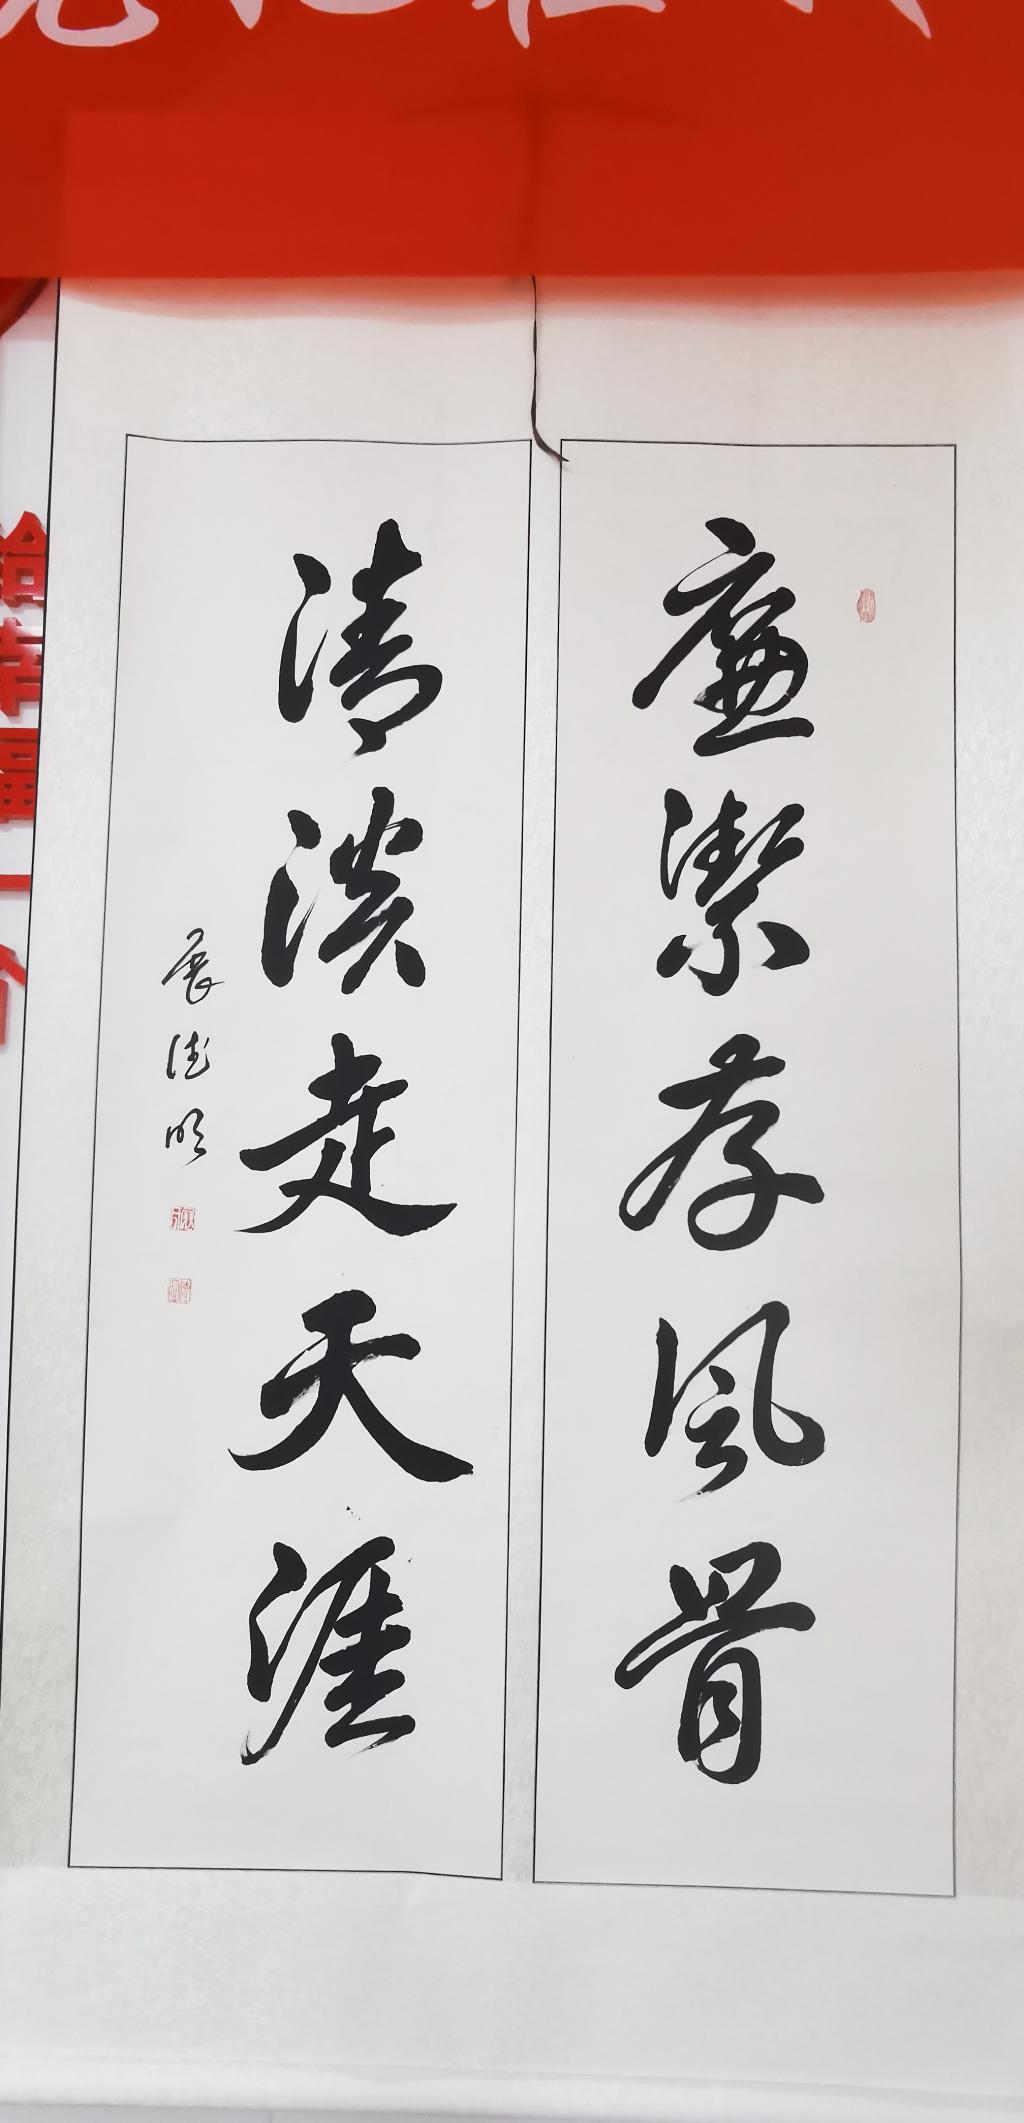 廉潔存風骨
清淡走天涯
展德明